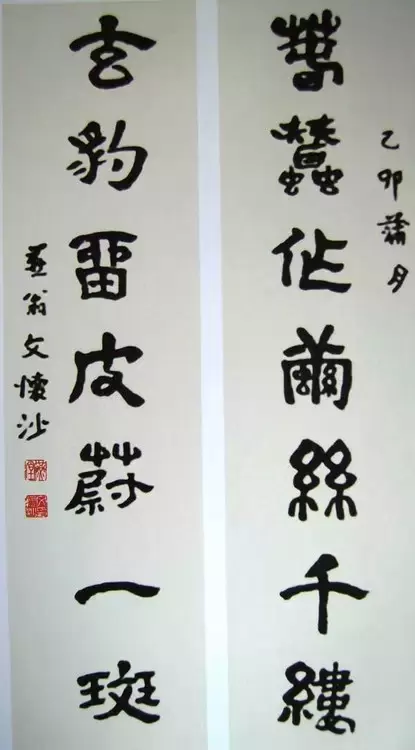 乙卯蒲月
蠶作繭絲千縷
玄豹畱皮蔚一斑
燕翁文懷沙